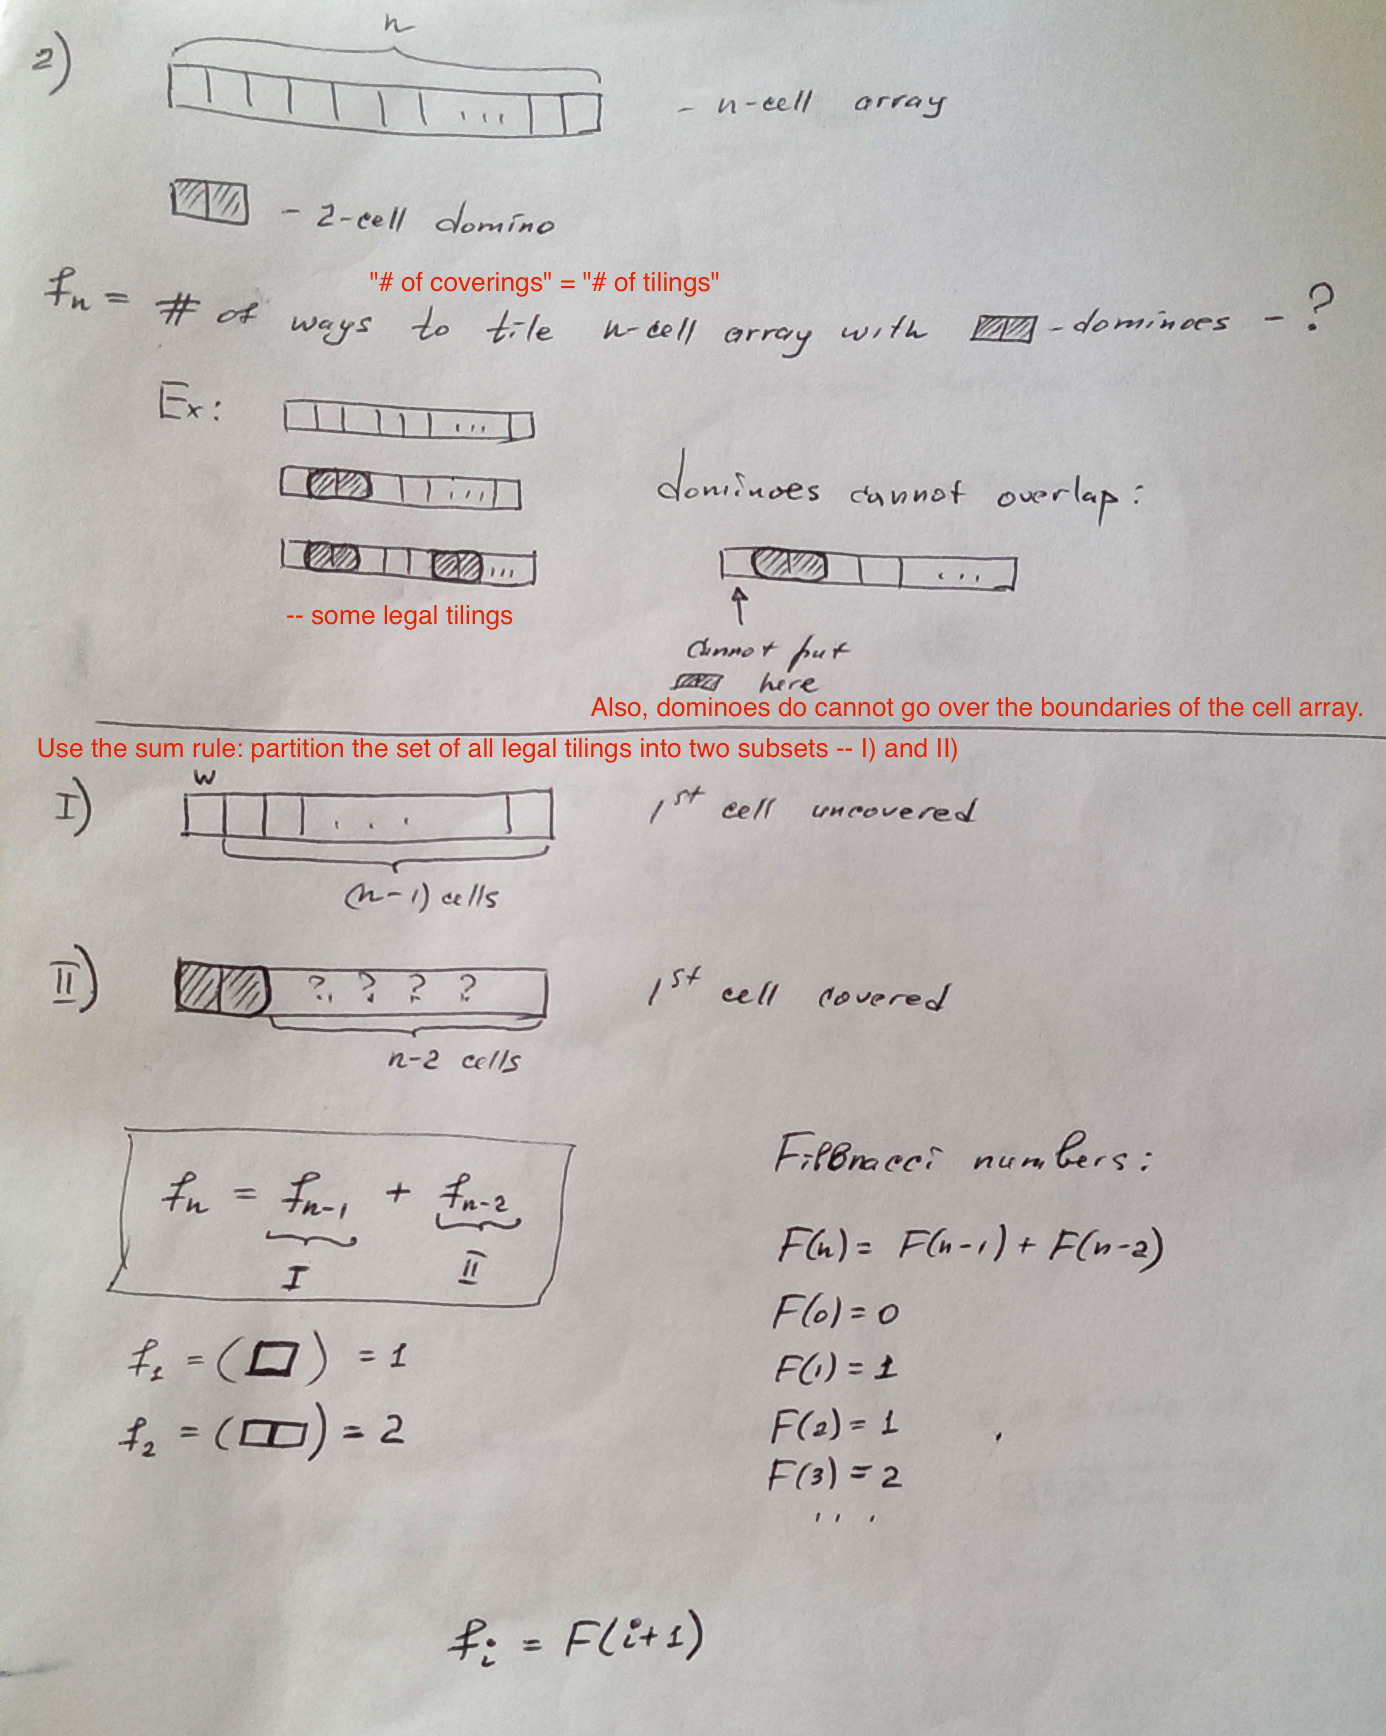 n
2)
- n-cell array
...
- 2-cell domino
"# of coverings" = "# of tilings"
fn = # of ways to tile n-cell array with - dominoes - ?
Ex:
...
...
dominoes cannot overlap:
...
...
-- some legal tilings
cannot put
here
Also, dominoes do cannot go over the boundaries of the cell array.
Use the sum rule: partition the set of all legal tilings into two subsets -- I) and II)
w
I) ... 1st cell uncovered
(n-1) cells
II) ? ? ? ? 1st cell covered
n-2 cells
Fibonacci numbers:
fn = fn-1 + fn-2
I II
F(n) = F(n-1) + F(n-2)
F(0) = 0
f1 = ( ) = 1
F(1) = 1
f2 = ( ) = 2
F(2) = 1
F(3) = 2
...
fi = F(i+1)